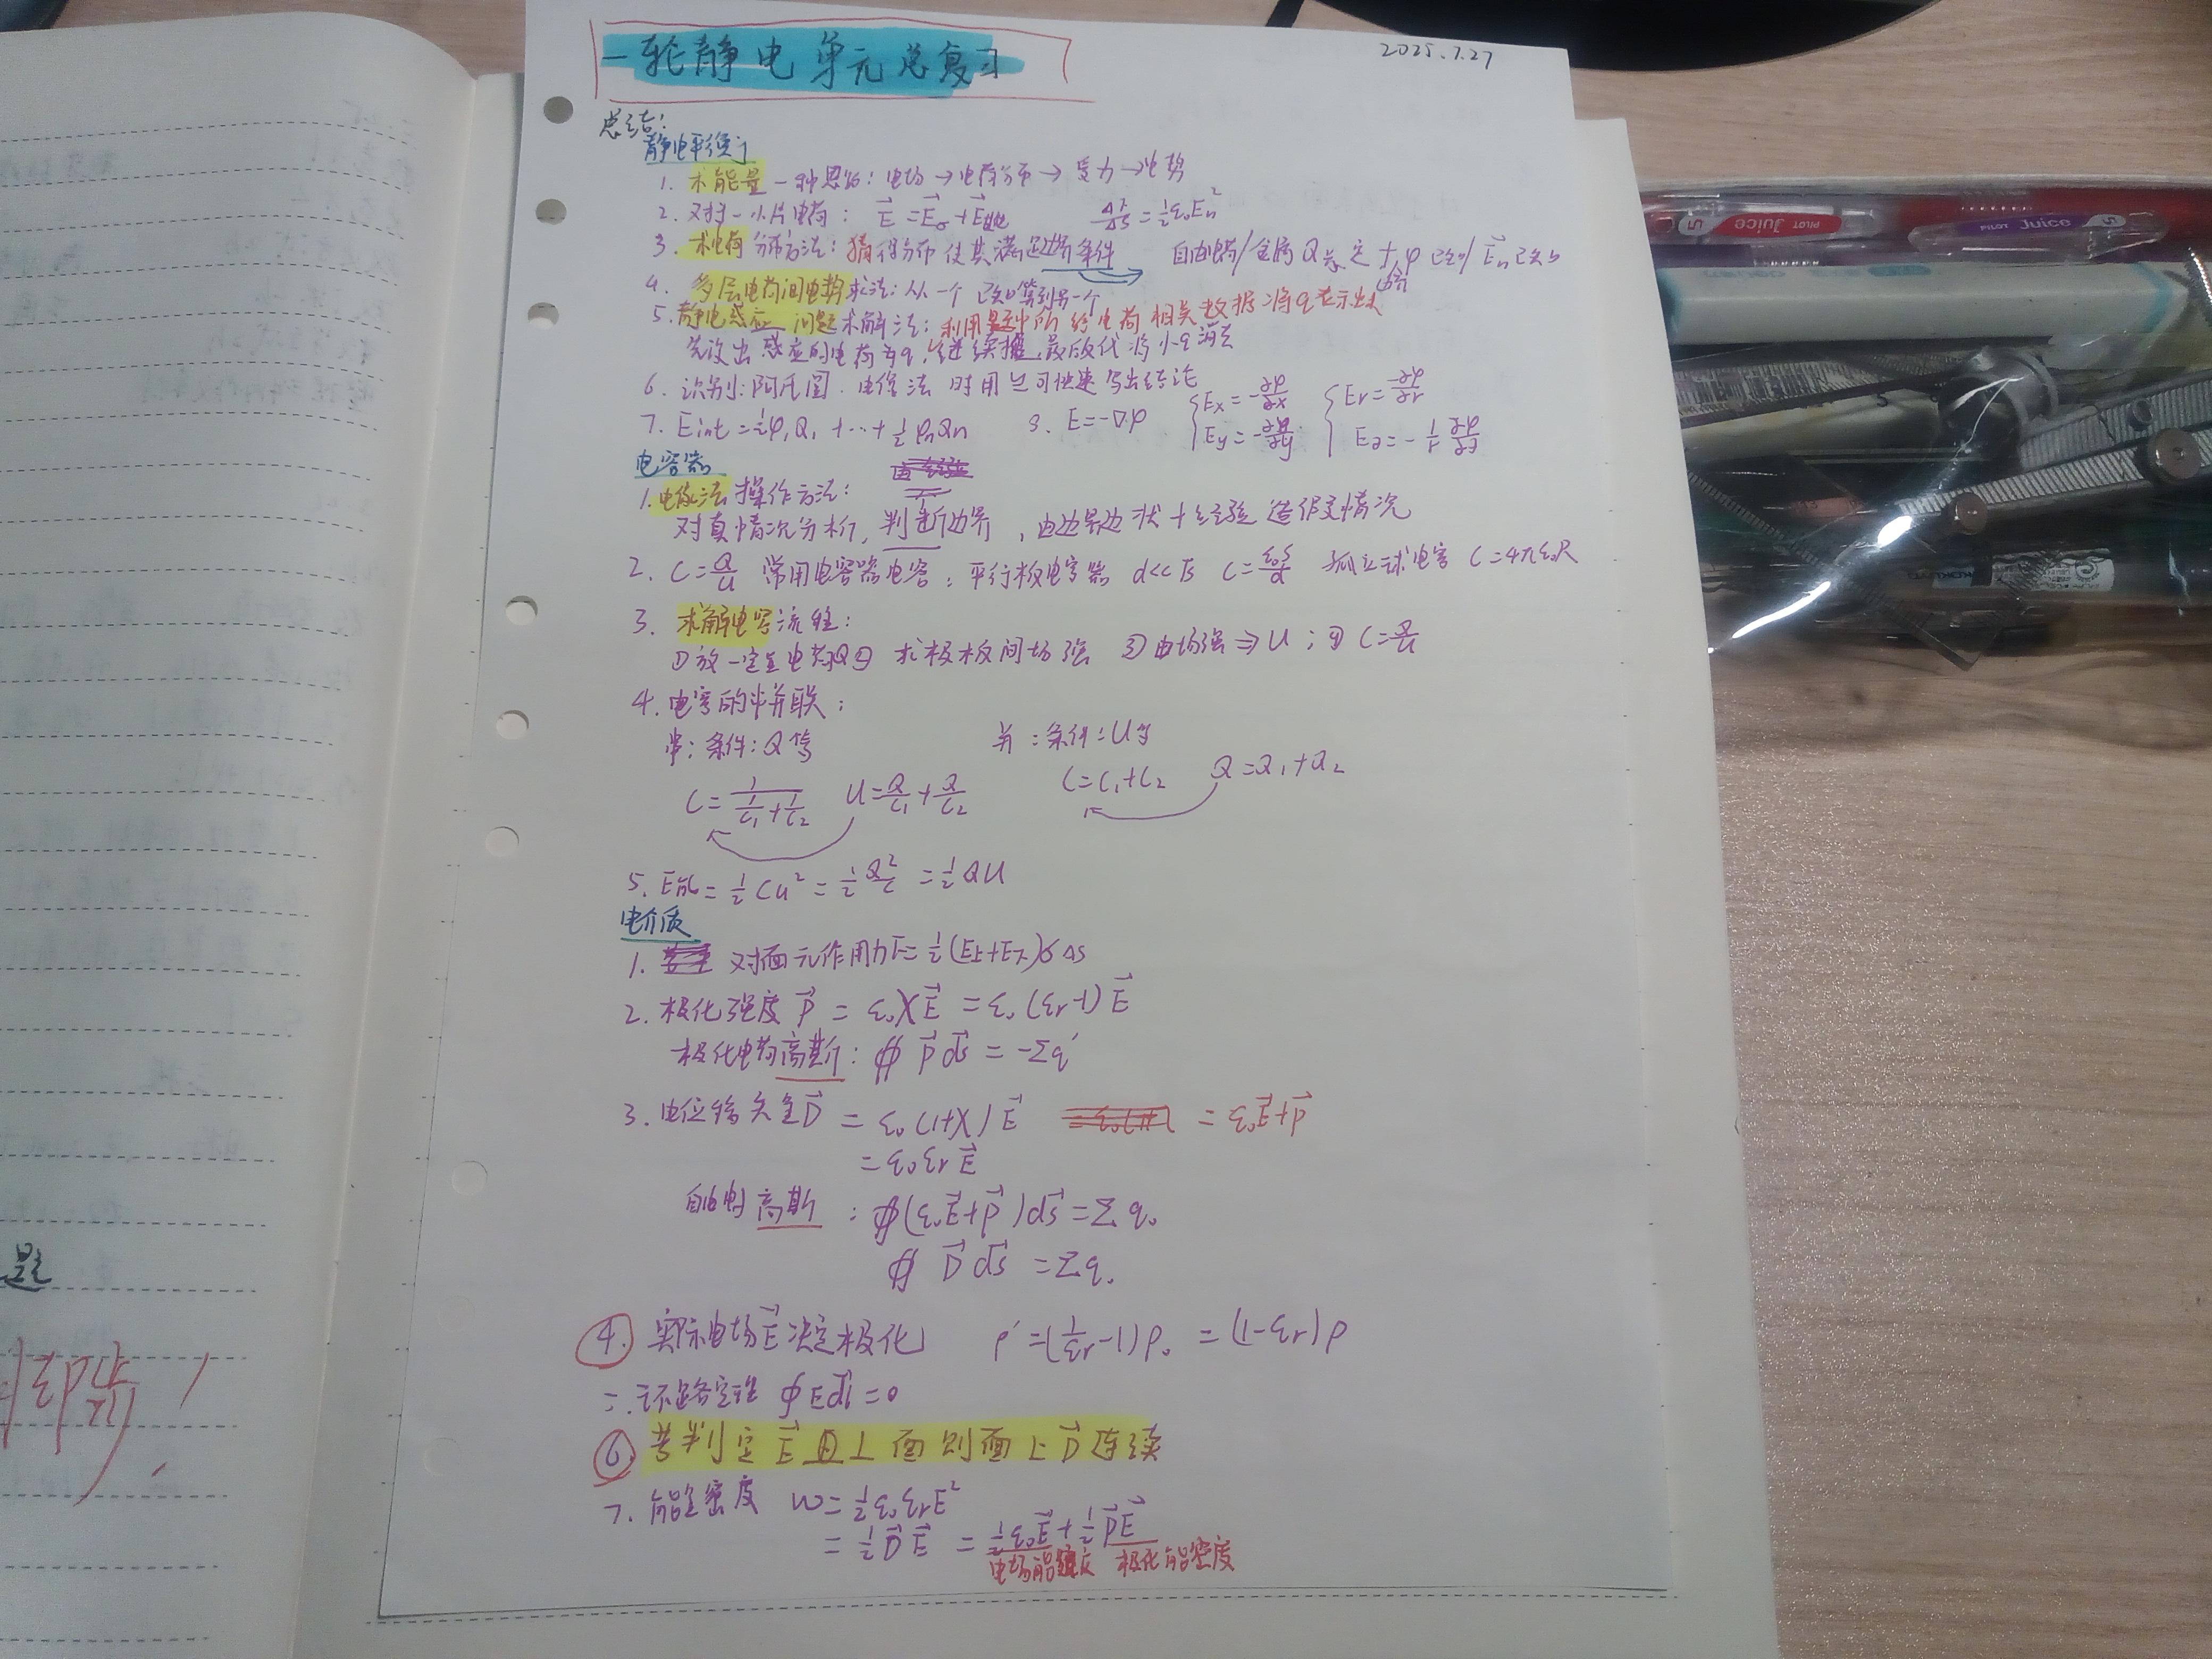 一轮静电单元总复习
2025.7.27
总结:
静电平衡
1. 求能量一种思路: 电场→电荷分布→受力→电势
2. 对于一小片电荷: E⃗=E⃗σ+E⃗其他 ΔF/ΔS=½ε₀Eₙ²
3. 求电荷分布方法: 猜得分布使其满足边界条件 自由电荷/金属Q总定+φ已知/E⃗n已知
4. 多层电荷间电势求法: 从一个已知算到另一个
5. 静电感应问题求解法: 利用题中所给电荷相关数据将q表示出来
先设出感应的电荷为q, 继续推, 最后代将小q消去
6. 识别: 阿氏圆. 电像法 时用 可快速写出结论
7. Eint=½φ₁Q₁+…+½φₙQₙ 8. E=-∇φ {Ex=-∂φ/∂x Ey=-∂φ/∂y {Er=-∂φ/∂r Eθ=-1/r ∂φ/∂θ
电容器
1. 电像法操作方法:
对真情况分析, 判断边界, 由边界边状+经验造假情况
2. C=Q/U 常用电容器电容: 平行板电容器 d<<√S C=ε₀S/d 孤立球电容 C=4πε₀R
3. 求解电容流程:
①放一定量电荷Q② 求极板间场强 ③由场强⇒U; ④ C=Q/U
4. 电容的串并联:
串: 条件: Q等 并: 条件: U等
C=1/(1/C₁+1/C₂) U=Q/C₁+Q/C₂ C=C₁+C₂ Q=Q₁+Q₂
5. E能=½CU²=½Q²/C=½QU
电介质
1. 对面元作用力F=½(E上+E下)σΔS
2. 极化强度P⃗=ε₀χE⃗=ε₀(εr-1)E⃗
极化电荷高斯: ∯P⃗ds⃗=-Σq'
3. 电位移矢量D⃗=ε₀(1+χ)E⃗ =ε₀E⃗+P⃗
=ε₀εrE⃗
自由电荷高斯: ∯(ε₀E⃗+P⃗)ds⃗=Σq₀
∯D⃗ds⃗=Σq₀
4. 实际电场E⃗决定极化 ρ'=(1/εr-1)ρ₀=(1-εr)ρ
5. 环路定理 ∮Edl⃗=0
6. 若判定E⃗且⊥面则面上D⃗连续
7. 能量密度 w=½ε₀εrE²
=½D⃗E⃗=½ε₀E⃗+½P⃗E⃗
电场能量密度 极化能密度
题